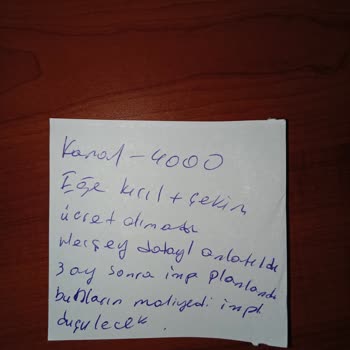 Kanal - 4000
Eğe kırıl + çekim
ücret alınmadı
Herşey detaylı anlatıldı
3 ay sonra imp planlandı
bunların maliyedi impl.
düşülecek.